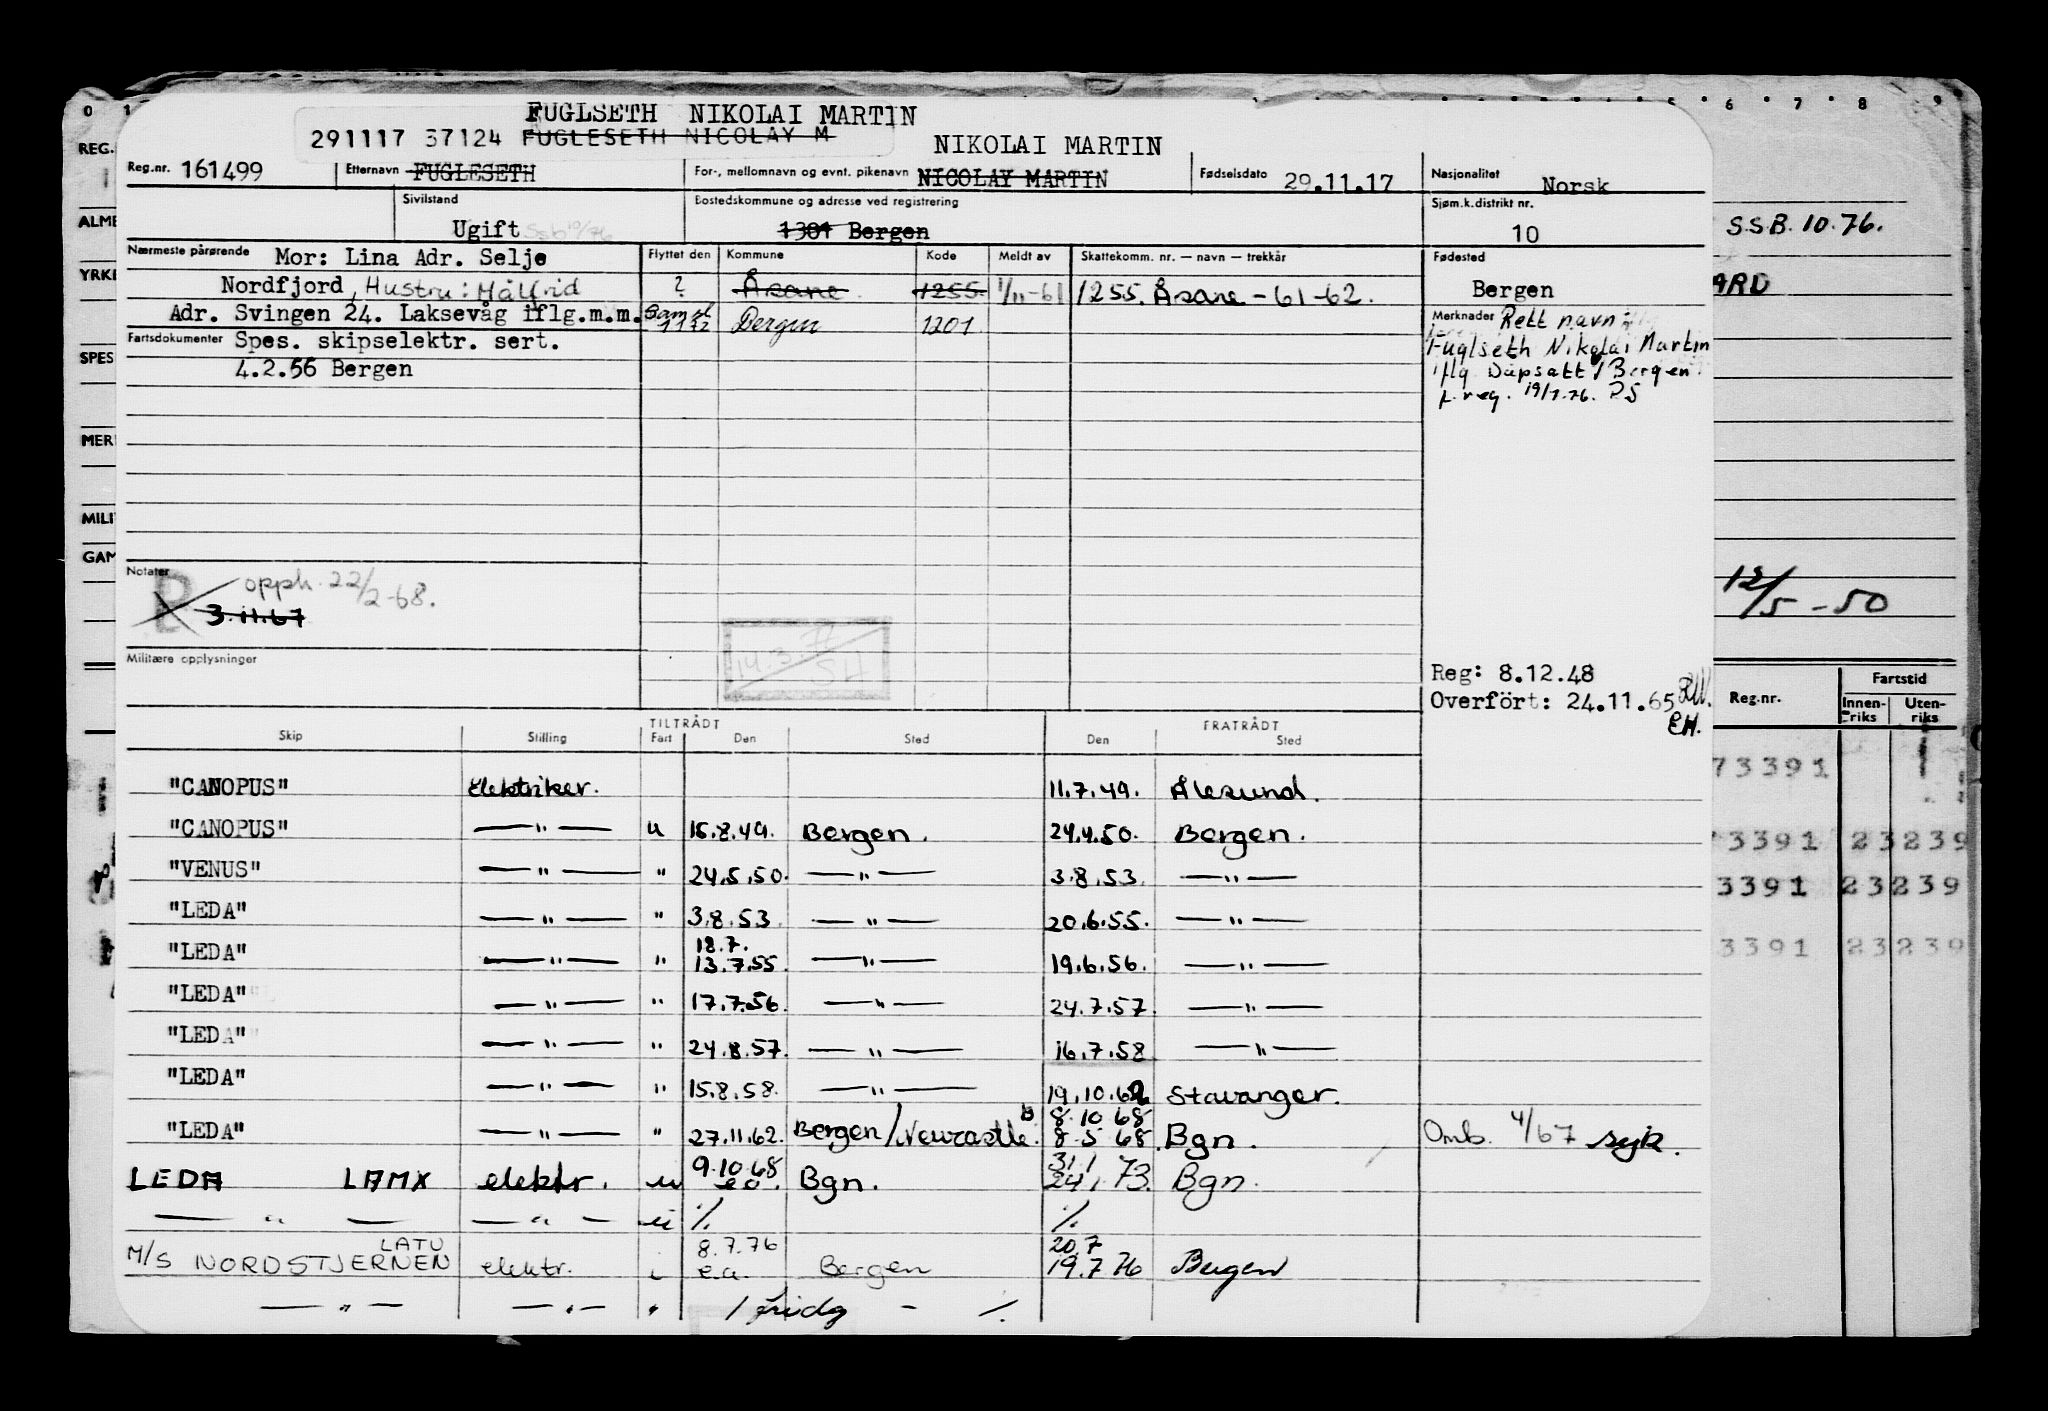 FUGLSETH NIKOLAI MARTIN
291117 37124 FUGLESETH NICOLAY M
NIKOLAI MARTIN
Reg.nr. 161499 Etternavn FUGLESETH For-, mellomnavn og evnt. pikenavn NICOLAY MARTIN Fødselsdato 29.11.17 Nasjonalitet Norsk
Sivilstand Ugift Ssb 10/76 Bostedskommune og adresse ved registrering 1301 Bergen Sjøm.k.distrikt nr. 10
Nærmeste pårørende Mor: Lina Adr. Selje Flyttet den Kommune Kode Meldt av Skattekomm. nr. — navn — trekkår Fødested
Nordfjord, Hustru: Målfrid ? Åsane 1255 1/11-61 1255 Åsane - 61-62. Bergen
Adr. Svingen 24. Laksevåg iflg.m.m. Saml 1172 Bergen 1201
Merknader Rett navn
Fuglseth Nikolai Martin
iflg Dåpsatt / Bergen
f.reg. 19/7.76. PS
Fartsdokumenter Spes. skipselektr. sert.
4.2.56 Bergen
Notater opph. 22/2-68.
3.11.67
14.3.77
SH
Militære opplysninger
Reg: 8.12.48
Overfört: 24.11.65
EH.
TILTRÅDT FRATRÅDT
Skip Stilling Fart Den Sted Den Sted
"CANOPUS" Elektriker. 11.7.49. Ålesund.
"CANOPUS" —"— u 15.8.49. Bergen. 24.4.50. Bergen.
"VENUS" —"— " 24.5.50. —"— 3.8.53. —"—
"LEDA" —"— " 3.8.53 —"— 20.6.55. —"—
18.7.
"LEDA" —"— " 13.7.55. —"— 19.6.56. —"—
"LEDA" —"— " 17.7.56. —"— 24.7.57. —"—
"LEDA" —"— " 24.8.57. —"— 16.7.58 —"—
"LEDA" —"— " 15.8.58. —"— 19.10.62 Stavanger.
8.10 68
"LEDA" —"— " 27.11.62. Bergen/Newcastle. 8.5 68 Bgn. Omb. 4/67 syk.
9.10.68 31/1
LEDA LAMX elektr. u e.o. Bgn. 24/1 73. Bgn.
—"— —"— ui % %
LATU 8.7.76 20.7
M/S NORDSTJERNEN elektr. i e.a. Bergen 19.7 76 Bergen
—"— —"— " / fridg - /.
0 1 5 6 7 8 9
REG.
ALME
YRKE
SPES
MER
MILI
GAM
S.S.B. 10.76.
ARD
12/5 - 50
Reg.nr. Fartstid
Innen-riks Uten-riks
73391 1
3391 23239
3391 23239
3391 23239